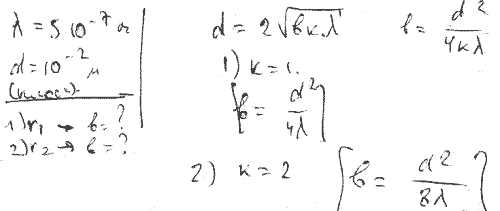 λ = 5 10⁻⁷ м
d = 10⁻² м
1) r₁ → b = ?
2) r₂ → b = ?
d = 2√(bkλ)
b = d²/4kλ
1) k = 1.
b = d²/4λ
2) k = 2
b = d²/8λ